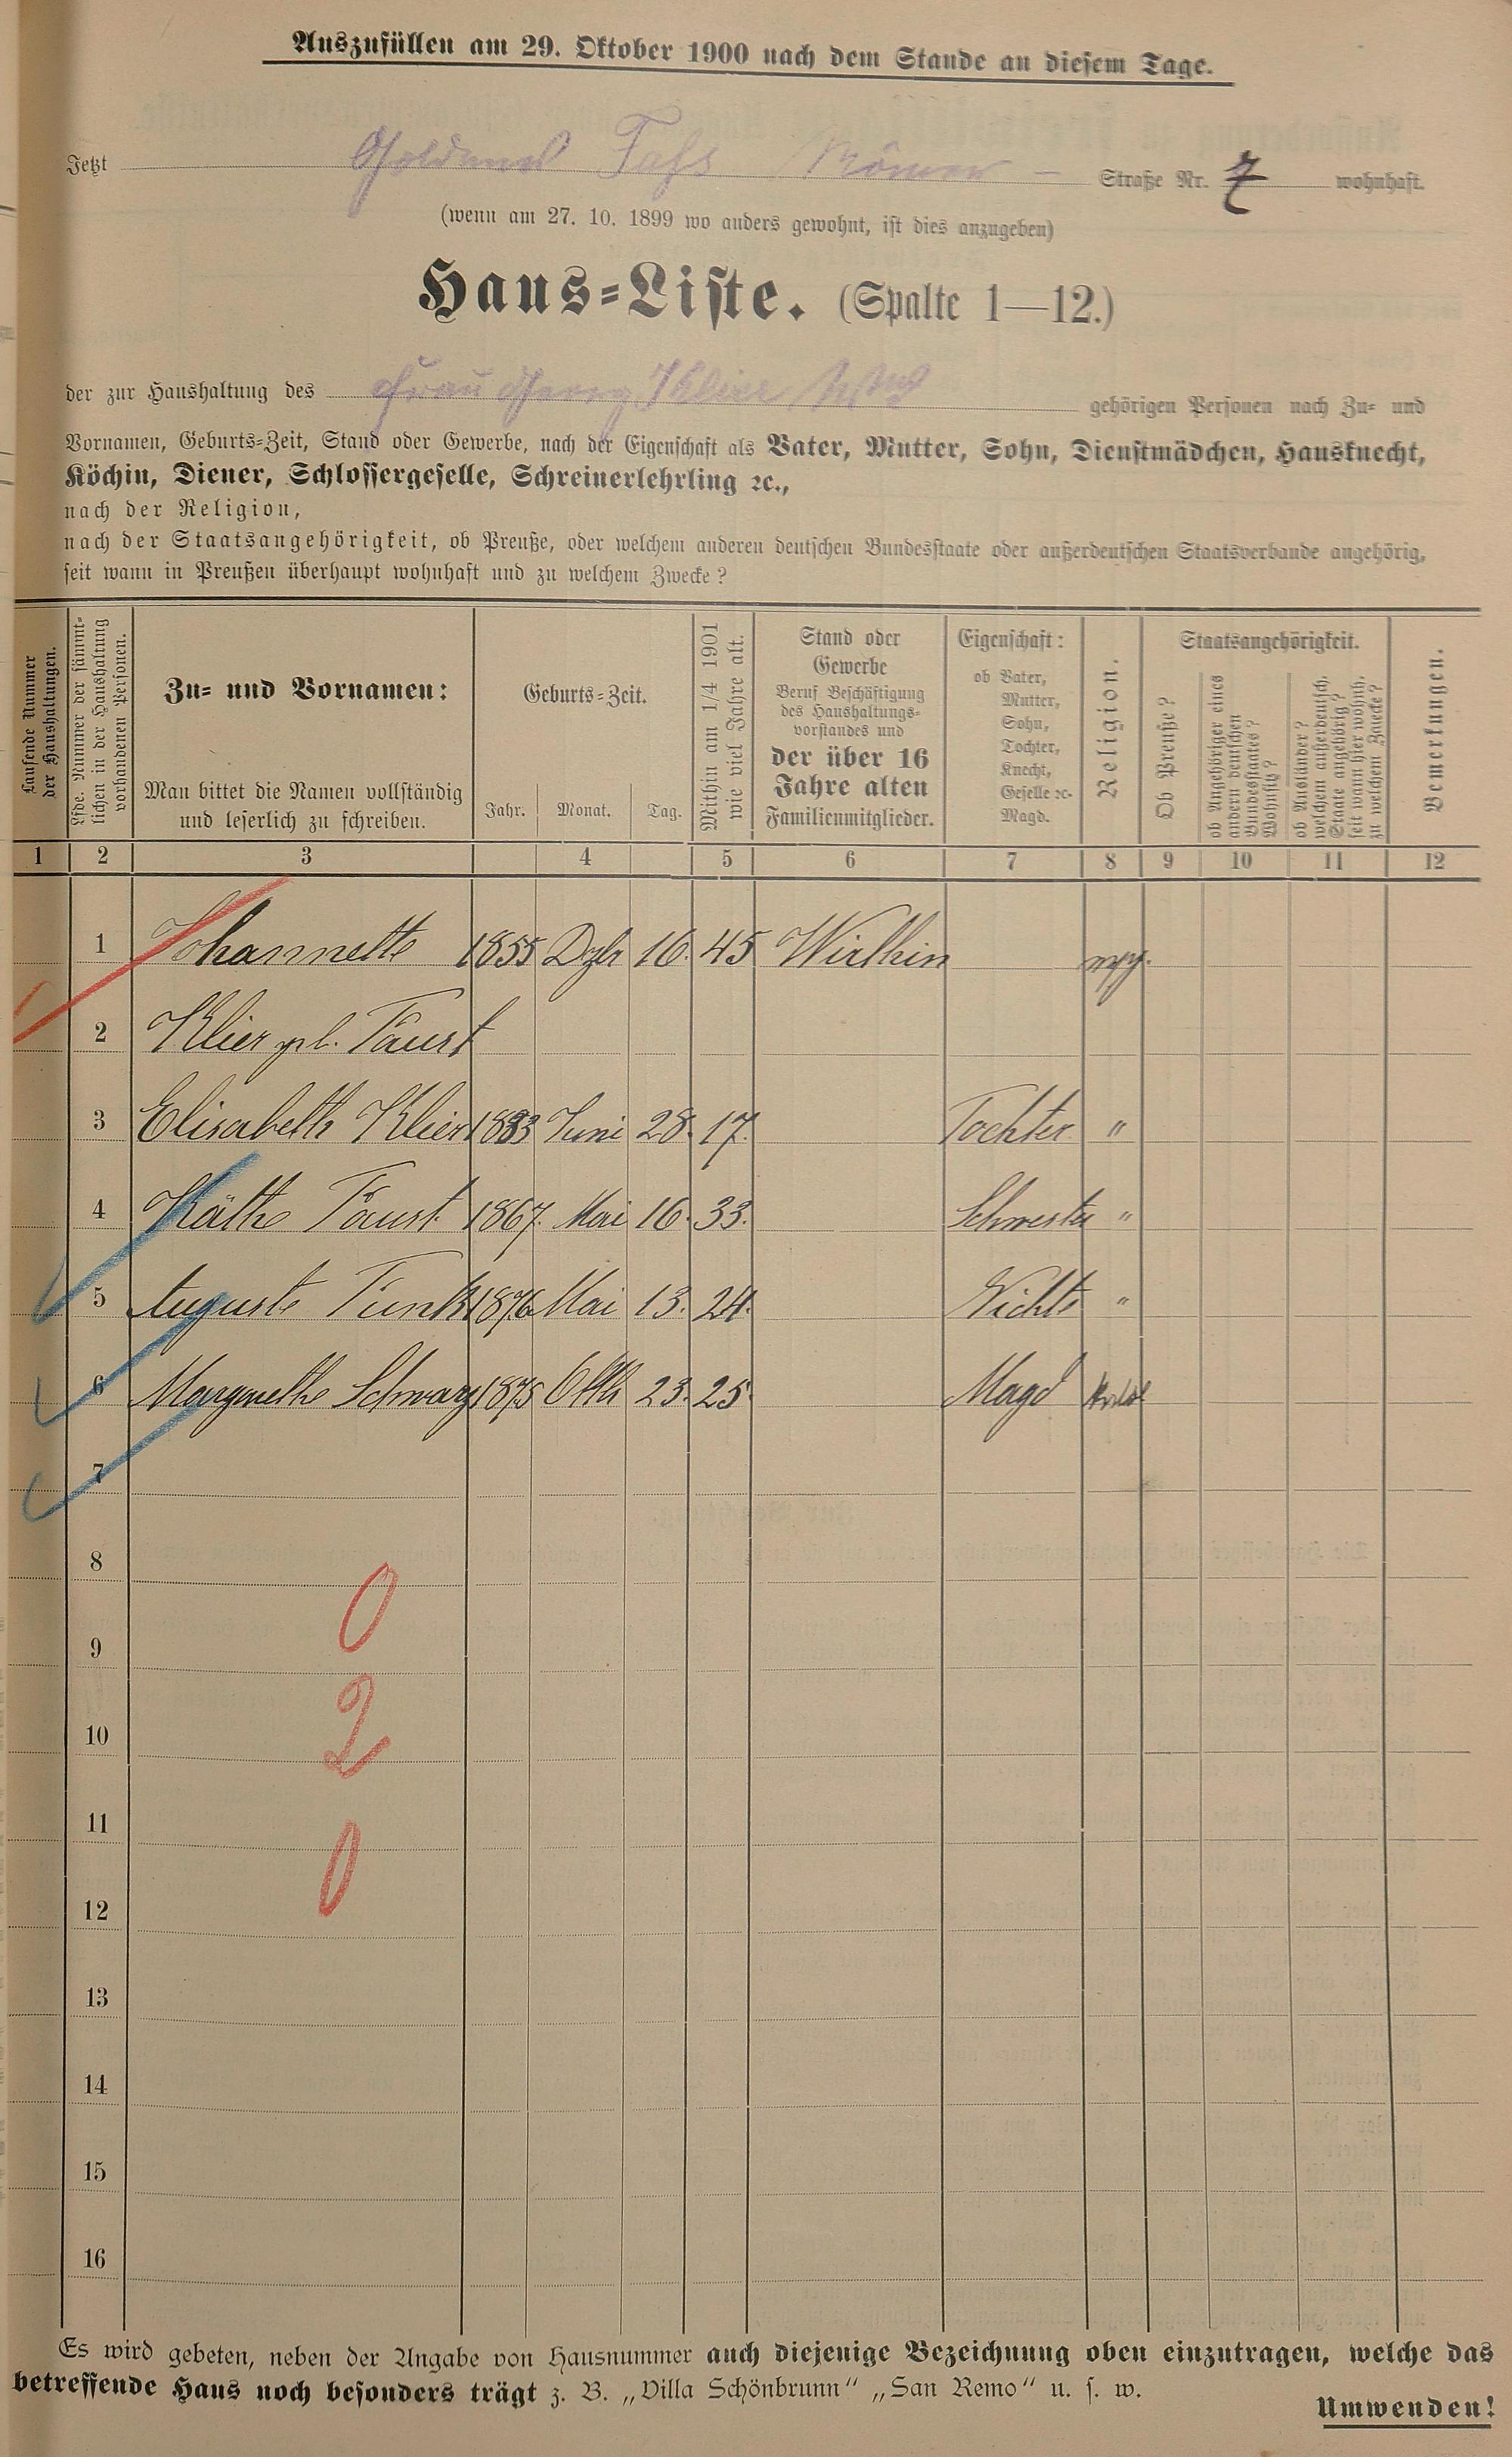 Auszufüllen am 29. Oktober 1900 nach dem Stande an diesem Tage.
Jetzt Goldenes Fass Römer - Straße Nr. 7 wohnhaft.
(wenn am 27. 10. 1899 wo anders gewohnt, ist dies anzugeben)
Haus-Liste. (Spalte 1—12.)
der zur Haushaltung des Frau Georg Klier Wwe gehörigen Personen nach Zu- und
Vornamen, Geburts-Zeit, Stand oder Gewerbe, nach der Eigenschaft als Vater, Mutter, Sohn, Dienstmädchen, Hausknecht,
Köchin, Diener, Schlossergeselle, Schreinerlehrling ꝛc.,
nach der Religion,
nach der Staatsangehörigkeit, ob Preuße, oder welchem anderen deutschen Bundesstaate oder außerdeutschen Staatsverbande angehörig,
seit wann in Preußen überhaupt wohnhaft und zu welchem Zwecke?
Laufende Nummer
der Haushaltungen.
Lfde. Nummer der sämmt-
lichen in der Haushaltung
vorhandenen Personen.
Zu- und Vornamen:
Man bittet die Namen vollständig
und leserlich zu schreiben.
Geburts-Zeit.
Jahr. Monat. Tag.
Mithin am 1/4 1901
wie viel Jahre alt.
Stand oder
Gewerbe
Beruf Beschäftigung
des Haushaltungs-
vorstandes und
der über 16
Jahre alten
Familienmitglieder.
Eigenschaft:
ob Vater,
Mutter,
Sohn,
Tochter,
Knecht,
Geselle ꝛc.
Magd.
Religion.
Staatsangehörigkeit.
Ob Preuße?
ob Angehöriger eines
andern deutschen
Bundesstaates?
Wohnsitz?
ob Ausländer?
welchem außerdeutsch.
Staate angehörig?
seit wann hier wohnh.
zu welchem Zwecke?
Bemerkungen.
1 2 3 4 5 6 7 8 9 10 11 12
1 Johannette 1855 Dzbr 16. 45 Wirthin
2 Klier gb. Faust
3 Elisabeth Klier 1883 Juni 28. 17. Tochter "
4 Käthe Faust 1867. Mai 16. 33. Schwester "
5 Auguste Funk 1876 Mai 13. 24. Nichte "
6 Margarethe Schwarz 1875 Oktb 23. 25. Magd
7
8
0
9
2
10
11
0
12
13
14
15
16
Es wird gebeten, neben der Angabe von Hausnummer auch diejenige Bezeichnung oben einzutragen, welche das
betreffende Haus noch besonders trägt z. B. „Villa Schönbrunn" „San Remo" u. s. w.
Umwenden!